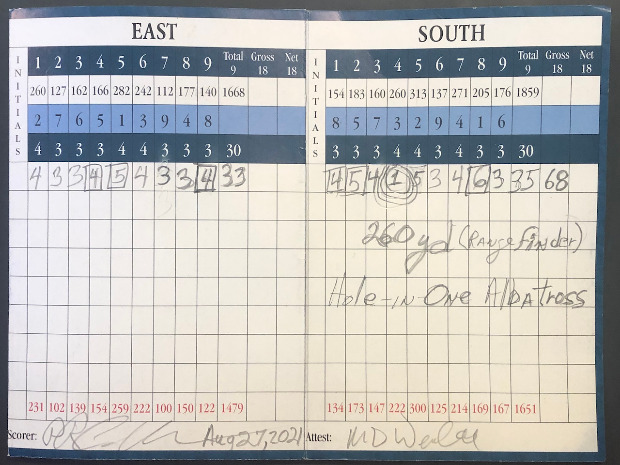 EAST
INITIALS
1 2 3 4 5 6 7 8 9 Total 9 Gross 18 Net 18
260 127 162 166 282 242 112 177 140 1668
2 7 6 5 1 3 9 4 8
4 3 3 3 4 4 3 3 3 30
4 3 3 4 5 4 3 3 4 33
231 102 139 154 259 222 100 150 122 1479
Scorer: Aug 27, 2021
SOUTH
INITIALS
1 2 3 4 5 6 7 8 9 Total 9 Gross 18 Net 18
154 183 160 260 313 137 271 205 176 1859
8 5 7 3 2 9 4 1 6
3 3 3 4 4 3 4 3 3 30
4 5 4 1 5 3 4 6 3 35 68
260 yd (Range Finder)
Hole-in-One Albatross
134 173 147 222 300 125 214 169 167 1651
Attest: MD